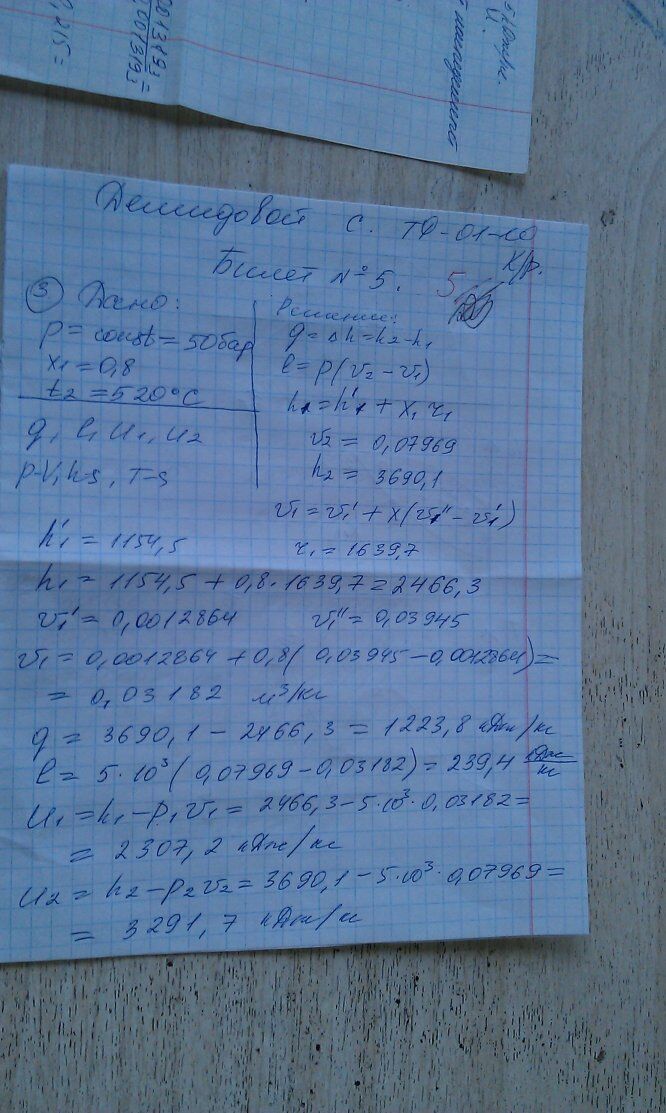 Демидовой С. ТФ-01-10
Билет №5.
5
х/р.
③ Дано:
p = const = 50 бар
x₁ = 0,8
t₂ = 520°C
q, l, u₁, u₂
p-v, h-s, T-s
Решение:
q = Δh = h₂ - h₁
l = p(v₂ - v₁)
h₁ = h₁' + x₁ r₁
v₂ = 0,07969
h₂ = 3690,1
v₁ = v₁' + x(v₁'' - v₁')
h₁' = 1154,5 r₁ = 1639,7
h₁ = 1154,5 + 0,8 · 1639,7 = 2466,3
v₁' = 0,0012864 v₁'' = 0,03945
v₁ = 0,0012864 + 0,8( 0,03945 - 0,0012864) =
= 0,03182 м³/кг
q = 3690,1 - 2466,3 = 1223,8 кДж/кг
l = 5·10³( 0,07969 - 0,03182) = 239,4 кДж/кг
u₁ = h₁ - p₁v₁ = 2466,3 - 5·10³·0,03182 =
= 2307,2 кДж/кг
u₂ = h₂ - p₂v₂ = 3690,1 - 5·10³·0,07969 =
= 3291,7 кДж/кг